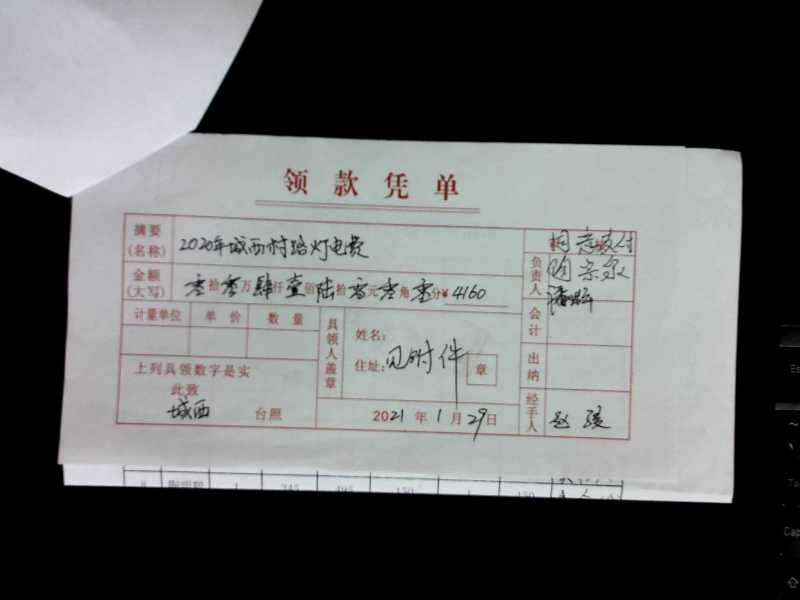 领款凭单
摘要(名称) 2020年城西村路灯电费
金额(大写) 零拾零万肆仟壹佰陆拾零元零角零分¥4160
计量单位 单价 数量
上列具领数字是实
此致
城西 台照
具领人盖章
姓名:
住址: 见附件 章
2021年1月29日
同意支付
负责人
会计
出纳
经手人
8 1 345 495 150 1 150